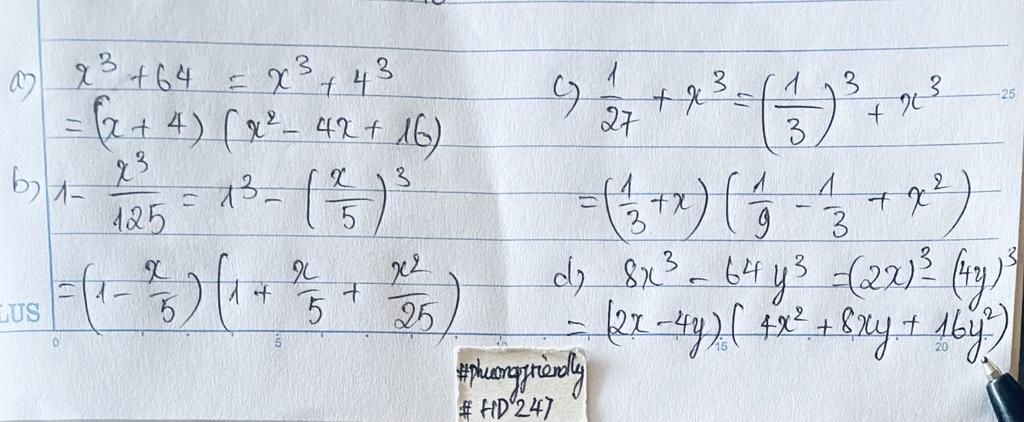 a) x³ + 64 = x³ + 4³
= (x + 4) (x² - 4x + 16)
b) 1 - x³/125 = 1³ - (x/5)³
= (1 - x/5) (1 + x/5 + x²/25)
c) 1/27 + x³ = (1/3)³ + x³
= (1/3 + x) (1/9 - 1/3 + x²)
d) 8x³ - 64y³ = (2x)³ - (4y)³
= (2x - 4y) (4x² + 8xy + 16y²)
LUS
0 5 10 15 20
25
#phuongfriendly
# HD 247